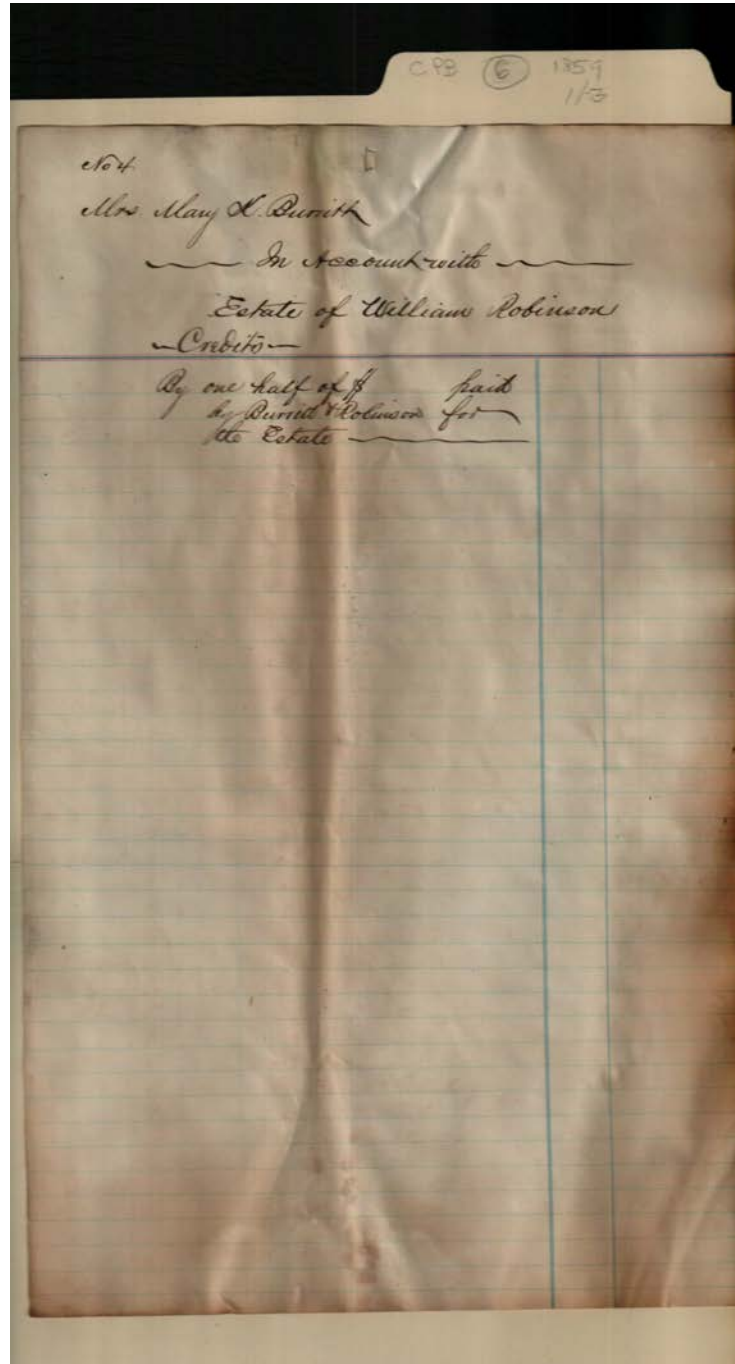 CPB 6 1859
1/3
No 4
Mrs. Mary K. Burritt
In Account with
Estate of William Robinson
Credits
By one half of $ paid
by Burritt & Robinson for
the Estate